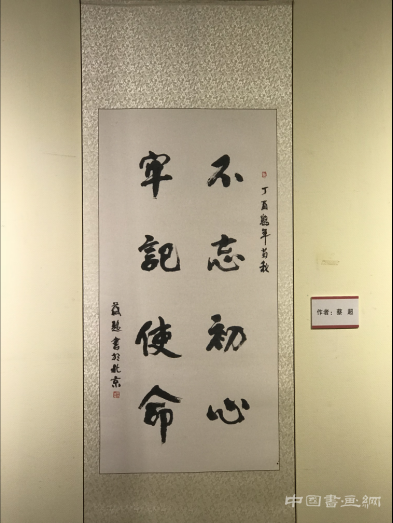 丁酉年秋
不忘初心
牢記使命
蔡超書於北京
作者：蔡 超
中国書画網